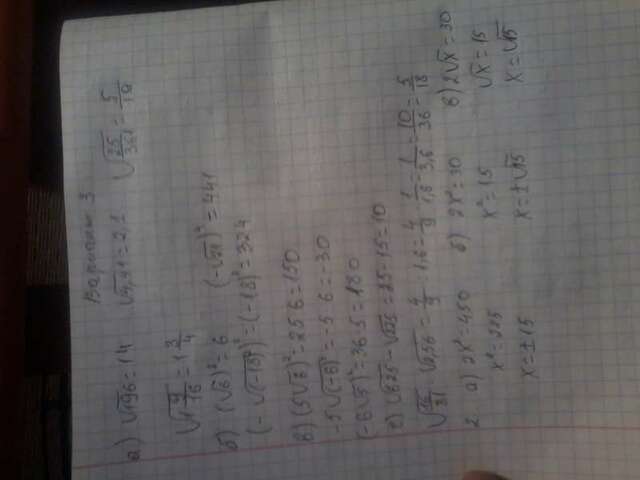 Вариант 3
а) √196=14 √4,41=2,1 √25/361=5/19
√1 9/16=1 3/4
б) (√6)²=6 (-√21)²=441
(-√(-18)²)²=(-18)²=324
в) (5√6)²=25·6=150
-5√(-6)²=-5·6=-30
(-6√5)²=36·5=180
г) √625-√225=25-15=10
2. а) 2x²=450 б) 2x²=30 в) 2√x=30
x²=225 x²=15 √x=15
x=±15 x=±√15 x=√15